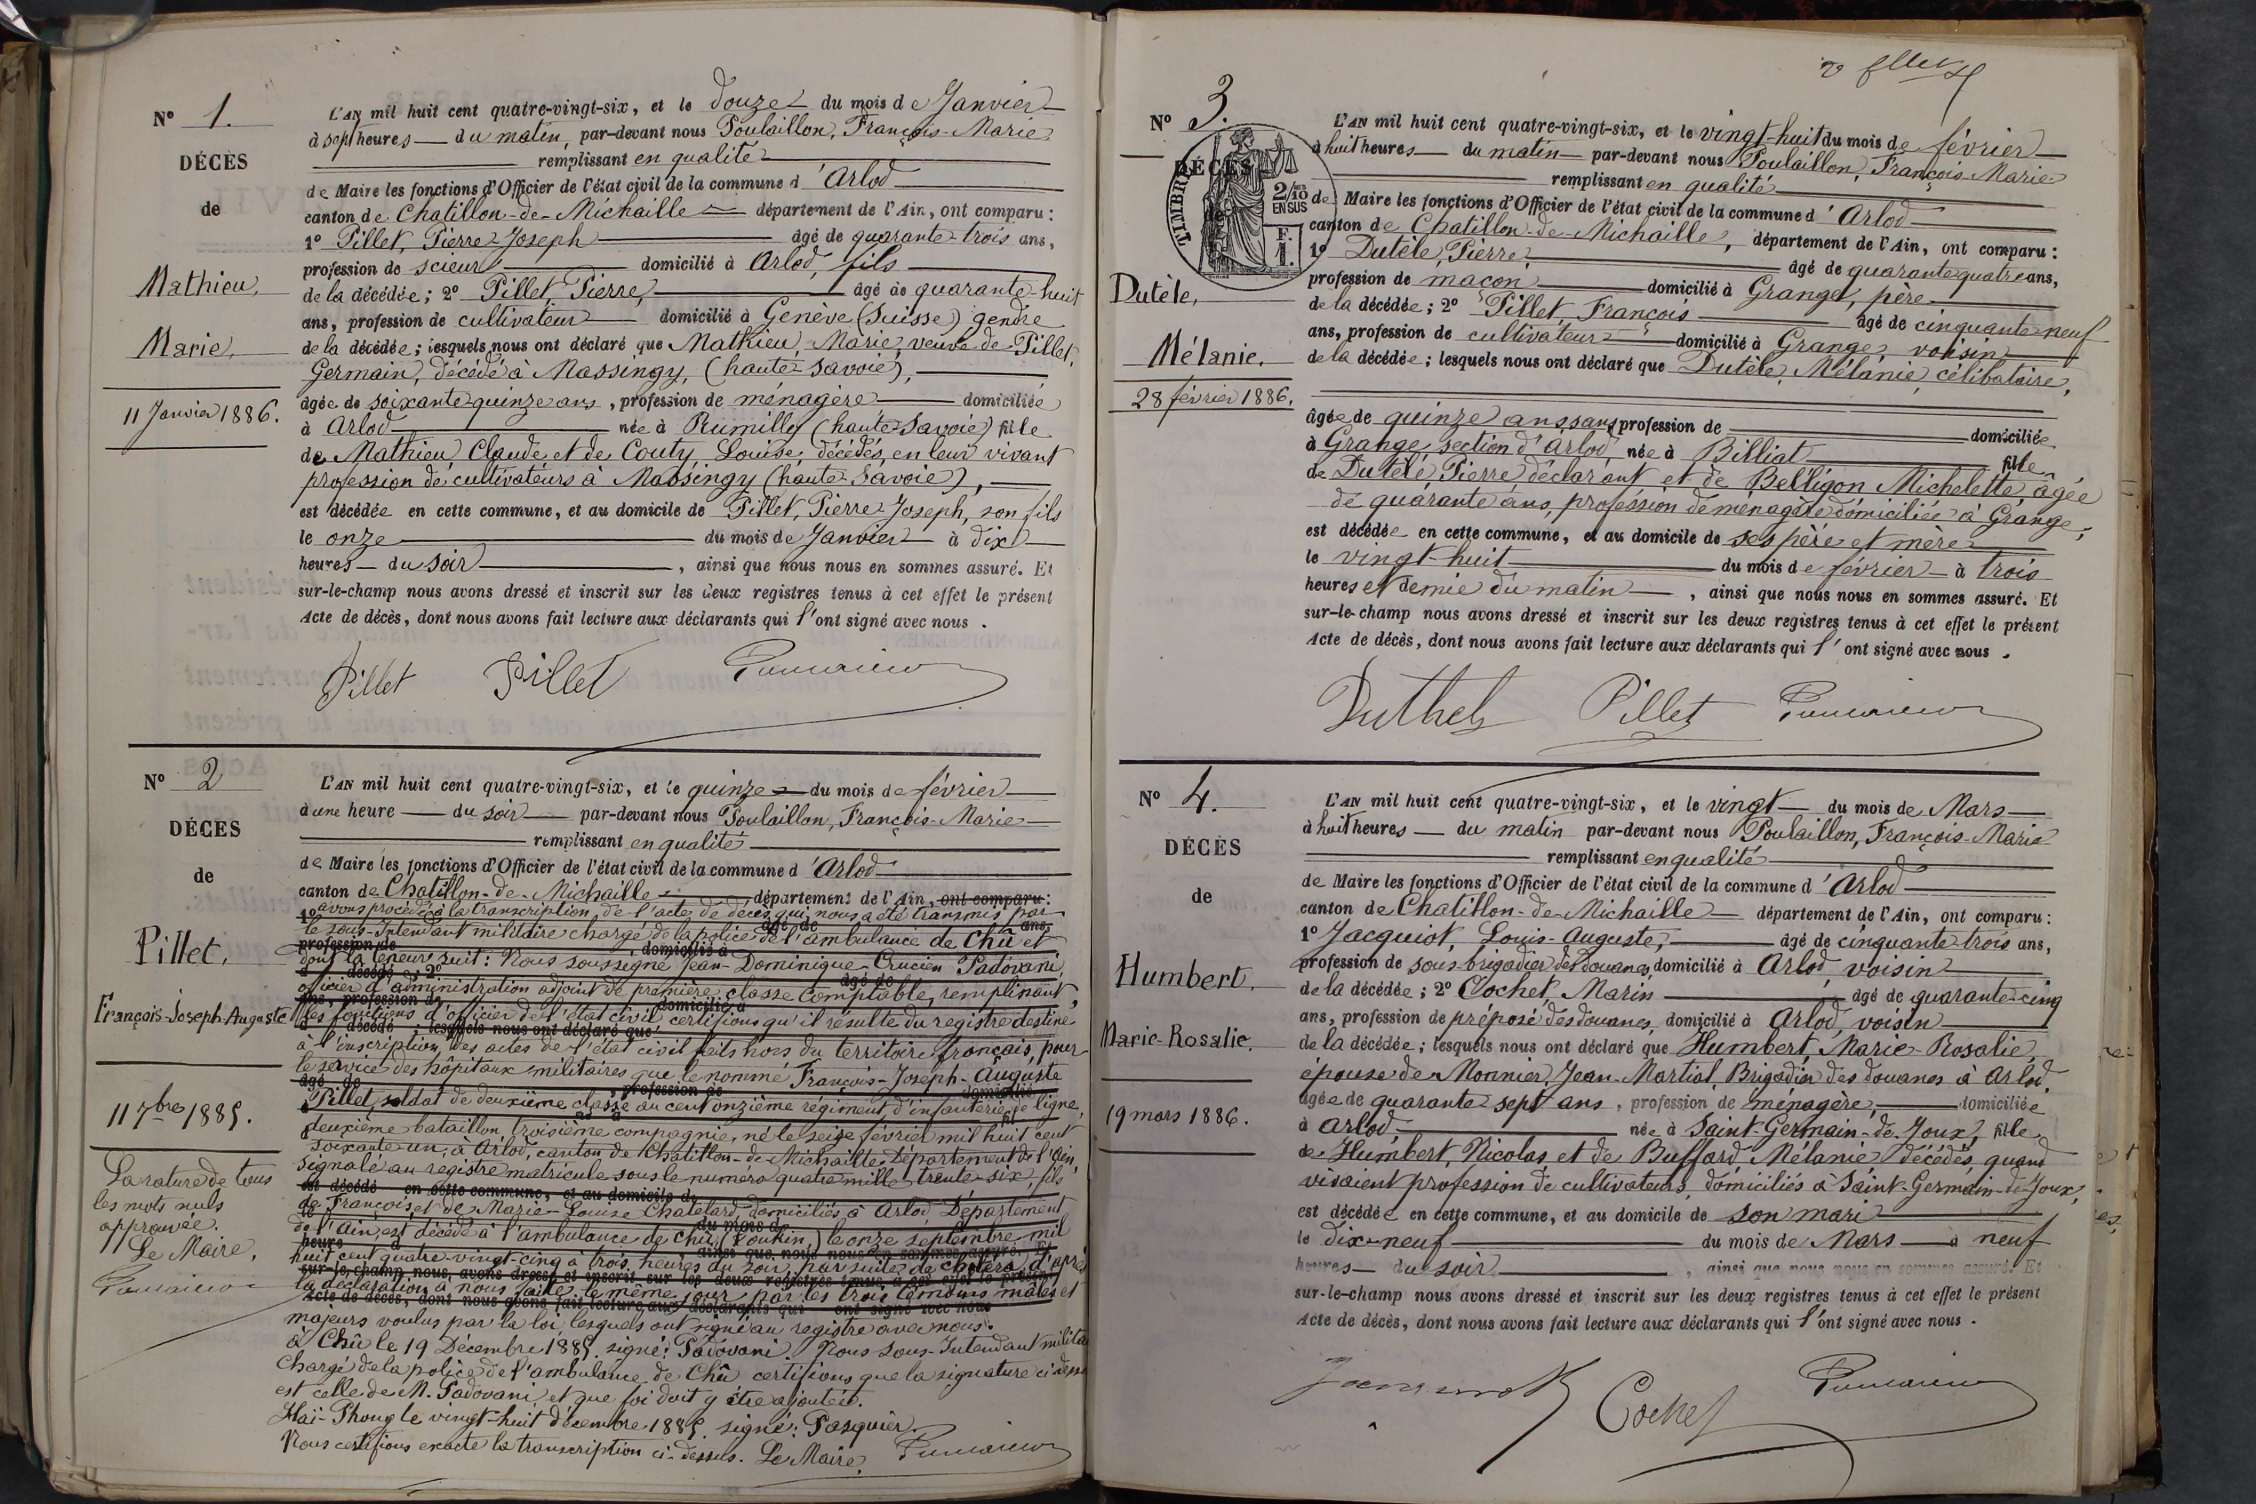 N° 1.
DÉCÈS
de
Mathieu,
Marie.
11 Janvier 1886.
L'AN mil huit cent quatre-vingt-six, et le douze du mois de Janvier
à sept heures du matin, par-devant nous Poulaillon, François-Marie
remplissant en qualité
de Maire les fonctions d'Officier de l'état civil de la commune d'Arlod
canton de Chatillon-de-Michaille département de l'Ain, ont comparu :
1° Pillet, Pierre Joseph âgé de quarante trois ans,
profession de scieur domicilié à Arlod, fils
de la décédée ; 2° Pillet, Pierre, âgé de quarante-huit
ans, profession de cultivateur domicilié à Genève (Suisse) gendre
de la décédée ; lesquels nous ont déclaré que Mathieu, Marie, veuve de Pillet,
Germain, décédé à Massingy, (haute Savoie),
âgée de soixante quinze ans, profession de ménagère domiciliée
à Arlod née à Rumilly (haute Savoie) fille
de Mathieu Claude et de Couty Louise, décédés, en leur vivant
profession de cultivateurs à Massingy (haute Savoie),
est décédée en cette commune, et au domicile de Pillet, Pierre Joseph, son fils
le onze du mois de Janvier à dix
heures du soir, ainsi que nous nous en sommes assuré. Et
sur-le-champ nous avons dressé et inscrit sur les deux registres tenus à cet effet le présent
Acte de décès, dont nous avons fait lecture aux déclarants qui l'ont signé avec nous.
Pillet Pillet
N° 2
DÉCÈS
de
Pillet,
François-Joseph-Auguste
11 7bre 1885.
La rature de tous
les mots nuls
approuvée.
Le Maire,
L'AN mil huit cent quatre-vingt-six, et le quinze du mois de février
à une heure du soir par-devant nous Poulaillon, François-Marie
remplissant en qualité
de Maire les fonctions d'Officier de l'état civil de la commune d'Arlod
canton de Chatillon-de-Michaille département de l'Ain, ont comparu :
avons procédé à la transcription de l'acte de décès qui nous a été transmis par
le sous-Intendant militaire chargé de la police de l'ambulance de Chû et
dont la teneur suit : Nous soussigné Jean-Dominique Crucien Padovani,
officier d'administration adjoint de première classe Comptable, remplissant
les fonctions d'officier de l'état civil certifions qu'il résulte du registre destiné
à l'inscription des actes de l'état civil faits hors du territoire français, pour
le service des hôpitaux militaires que le nommé François-Joseph-Auguste
Pillet, soldat de deuxième classe au cent onzième régiment d'infanterie de ligne,
deuxième bataillon, troisième compagnie, né le seize février mil huit cent
soixante un, à Arlod, canton de Chatillon-de-Michaille, Département de l'Ain,
signalé au registre matricule sous le numéro quatre mille trente-six, fils
de François et de Marie-Louise Chatelard, domiciliés à Arlod, Département
de l'Ain, est décédé à l'ambulance de Chû (Tonkin,) le onze septembre mil
huit cent quatre-vingt-cinq à trois heures du soir, par suite de choléra d'après
la déclaration à nous faite le même jour par les trois témoins mâles et
majeurs voulus par la loi lesquels ont signé au registre avec nous.
à Chû le 19 Décembre 1885. signé : Padovani. Nous Sous-Intendant militaire
chargé de la police de l'ambulance de Chû certifions que la signature ci-dessus
est celle de M. Padovani et que foi doit y être ajoutée.
Haï-Phong le vingt-huit décembre 1885. signé : Pasquier.
Nous certifions exacte la transcription ci-dessus. Le Maire,
N° 3.
DÉCÈS
de
TIMBRE
2/10 EN SUS
F. 1.
Dutèle,
Mélanie.
28 février 1886.
L'AN mil huit cent quatre-vingt-six, et le vingt-huit du mois de février
à huit heures du matin par-devant nous Poulaillon, François-Marie
remplissant en qualité
de Maire les fonctions d'Officier de l'état civil de la commune d'Arlod
canton de Chatillon-de-Michaille, département de l'Ain, ont comparu :
1° Dutèle, Pierre, âgé de quarante quatre ans,
profession de maçon domicilié à Grange, père
de la décédée ; 2° Pillet, François âgé de cinquante-neuf
ans, profession de cultivateur domicilié à Grange, voisin
de la décédée ; lesquels nous ont déclaré que Dutèle, Mélanie, célibataire,
âgée de quinze ans sans profession de domiciliée
à Grange, section d'Arlod née à Billiat fille
de Dutèle, Pierre déclarant et de Belligon Michelette, âgée
de quarante ans, profession de ménagère domiciliée à Grange,
est décédée en cette commune, et au domicile de ses père et mère
le vingt-huit du mois de février à trois
heures et demie du matin, ainsi que nous nous en sommes assuré. Et
sur-le-champ nous avons dressé et inscrit sur les deux registres tenus à cet effet le présent
Acte de décès, dont nous avons fait lecture aux déclarants qui l'ont signé avec nous.
Duthel Pillet
N° 4.
DÉCÈS
de
Humbert.
Marie-Rosalie.
19 mars 1886.
L'AN mil huit cent quatre-vingt-six, et le vingt du mois de Mars
à huit heures du matin par-devant nous Poulaillon, François-Marie
remplissant en qualité
de Maire les fonctions d'Officier de l'état civil de la commune d'Arlod
canton de Chatillon-de-Michaille département de l'Ain, ont comparu :
1° Jacquiot, Louis-Auguste, âgé de cinquante trois ans,
profession de sous brigadier des douanes, domicilié à Arlod, voisin
de la décédée ; 2° Cochet, Marin âgé de quarante-cinq
ans, profession de préposé des douanes, domicilié à Arlod, voisin
de la décédée ; lesquels nous ont déclaré que Humbert, Marie-Rosalie,
épouse de Monnier, Jean-Martial, Brigadier des douanes à Arlod.
âgée de quarante sept ans, profession de ménagère, domiciliée
à Arlod née à Saint-Germain-de-Joux, fille
de Humbert, Nicolas et de Buffard Mélanie décédés, quand
vivaient profession de cultivateurs, domiciliés à Saint-Germain-de-Joux,
est décédée en cette commune, et au domicile de son mari
le dix-neuf du mois de Mars à neuf
heures du soir, ainsi que nous nous en sommes assuré. Et
sur-le-champ nous avons dressé et inscrit sur les deux registres tenus à cet effet le présent
Acte de décès, dont nous avons fait lecture aux déclarants qui l'ont signé avec nous.
Cochet